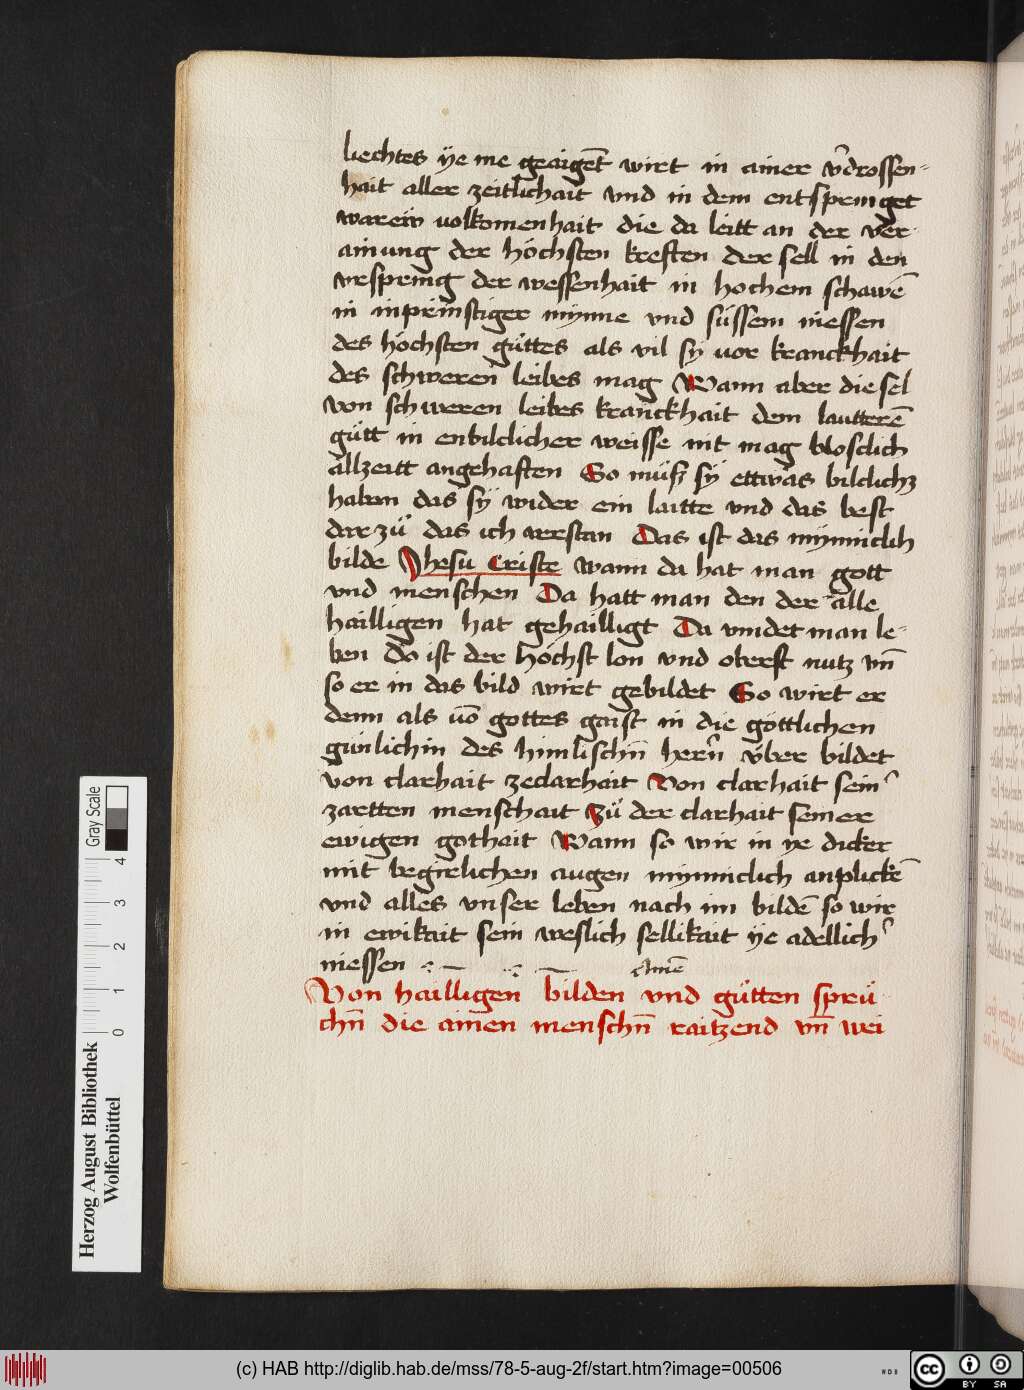 liechtes ye me geaigēt wirt in ainer v̄drossen=
hait aller zeitlichait vnd in dem entspringet
warein volkomenhait die da leitt an der ver=
ainung der höchsten kreften der sell in den
vrspring der wessenhait in hochem schawē
in inprinstiger mynne vnd süssem niessen
des höchsten güttes als vil sy vor kranckhait
des schweren leibes mag Wann aber die sel
von schweren leibes kranckhait dem lautterē
gütt in enbildicher weisse nit mag bloslich
allzeitt angehaften So müß sy ettwas bildichz
haben das sy wider ein laitte vnd das best
dar zů das ich verstan Das ist das mynniclich
bilde Jhesu Criste wann da hat man gott
vnd menschen Da hatt man den der alle
hailligen hat gehailligt Da vindet man le=
ben Do ist der höchst lon vnd oberst nutz vn̄
so er in das bild wirt gebildet So wirt er
denn als vō gottes gaist in die göttlichen
günlichin des himlischn̄ hern̄ v̈ber bildet
von clarhait zeclarhait Von clarhait sein
zartten menschait Zů der clarhait seiner
ewigen gothait Wann so wir in ye dicker
mit begirlichen augen mynniclich anplickē
vnd alles vnser leben nach im bildē so wir
in ewikait sein weslich sellikait ye adellich
niessen Amē
Von hailligen bilden vnd gütten sprü
chn̄ die ainen menschn̄ raitzend vn̄ wei
Gray Scale
0 1 2 3 4
Herzog August Bibliothek
Wolfenbüttel
(c) HAB http://diglib.hab.de/mss/78-5-aug-2f/start.htm?image=00506
CC BY SA